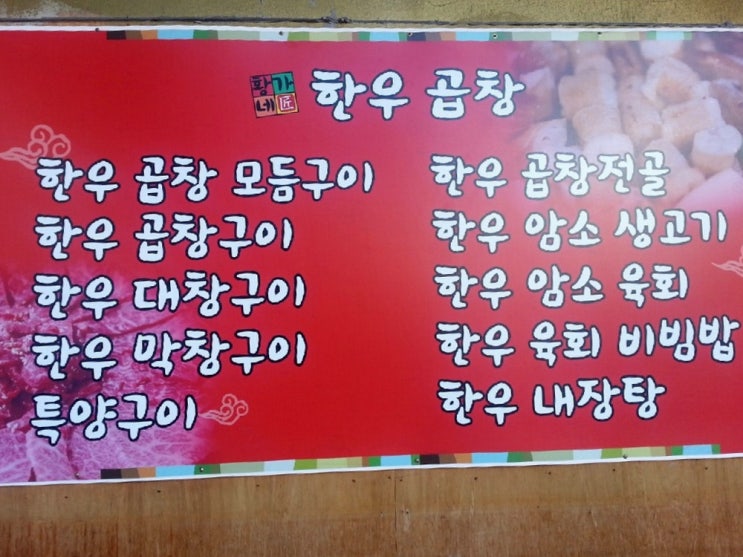 황가네匠 한우 곱창
한우 곱창 모듬구이
한우 곱창구이
한우 대창구이
한우 막창구이
특양구이
한우 곱창전골
한우 암소 생고기
한우 암소 육회
한우 육회 비빔밥
한우 내장탕